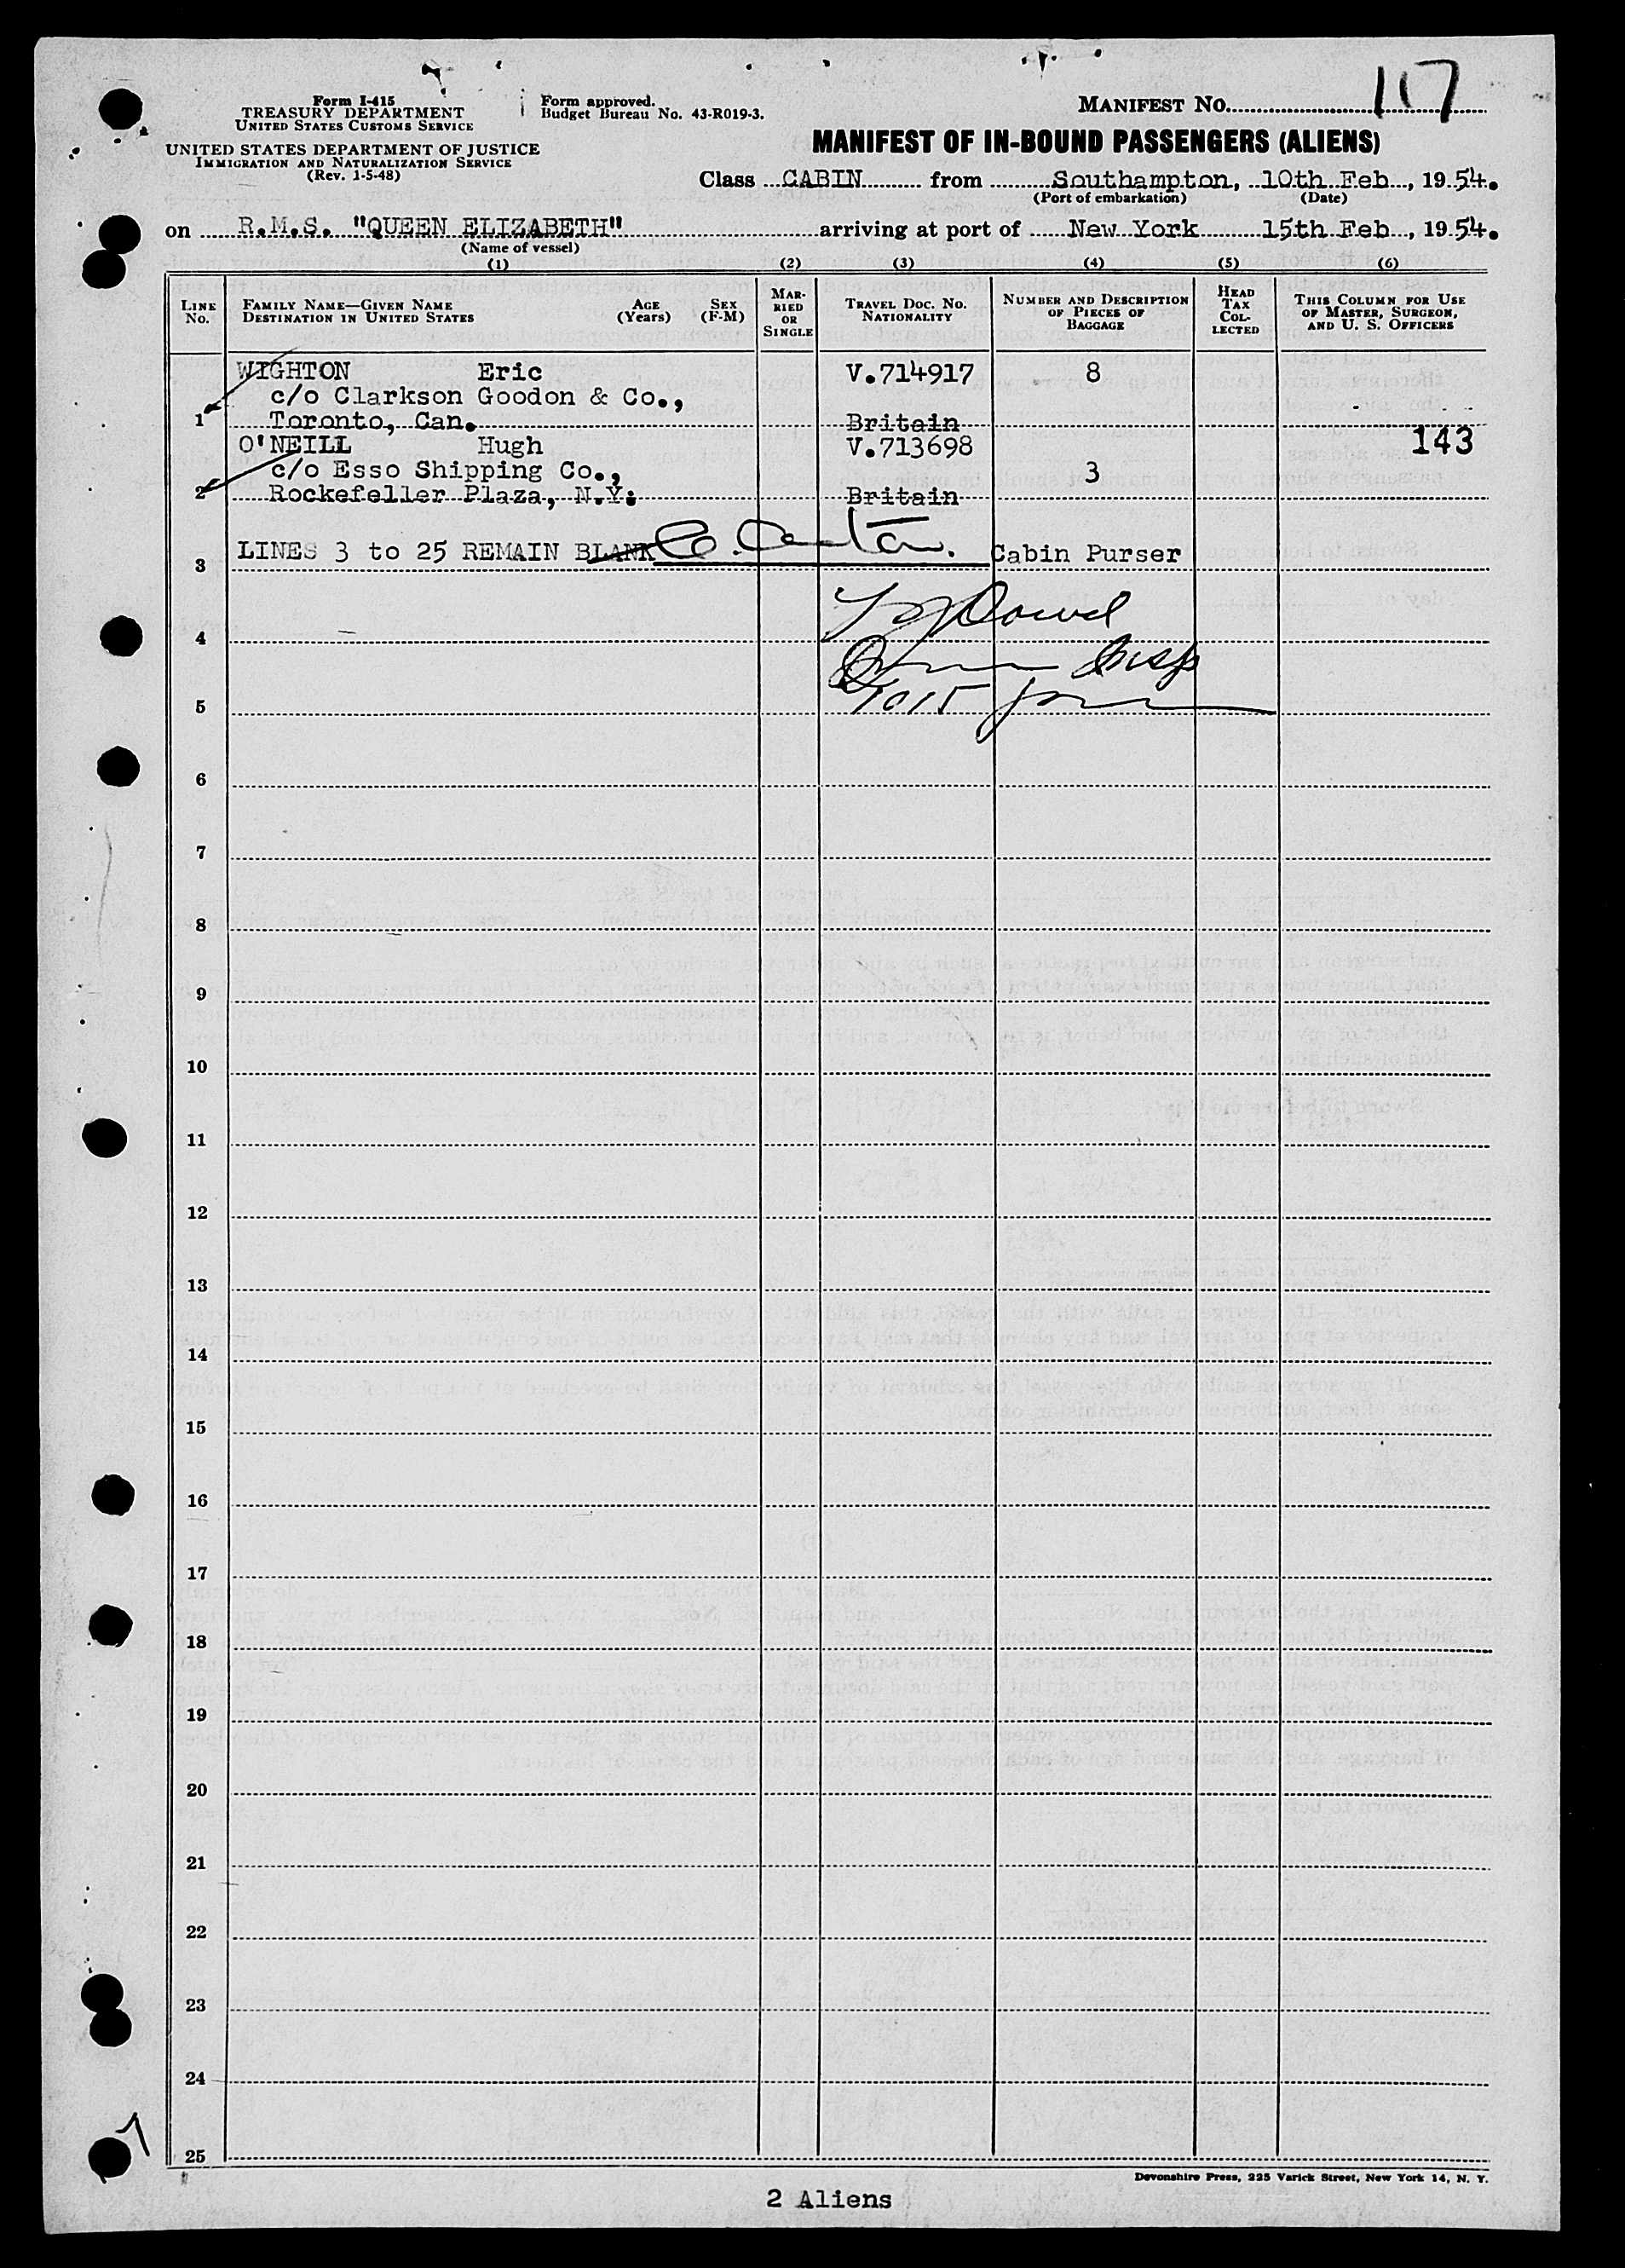 Form I-415
TREASURY DEPARTMENT
UNITED STATES CUSTOMS SERVICE
UNITED STATES DEPARTMENT OF JUSTICE
IMMIGRATION AND NATURALIZATION SERVICE
(Rev. 1-5-48)
Form approved.
Budget Bureau No. 43-R019-3.
MANIFEST NO. 117
MANIFEST OF IN-BOUND PASSENGERS (ALIENS)
Class CABIN from Southampton, 10th Feb, 1954.
(Port of embarkation) (Date)
on R.M.S. "QUEEN ELIZABETH" arriving at port of New York 15th Feb, 1954.
(Name of vessel)
(1) (2) (3) (4) (5) (6)
LINE No. FAMILY NAME—GIVEN NAME DESTINATION IN UNITED STATES AGE (Years) SEX (F-M) MARRIED OR SINGLE TRAVEL DOC. NO. NATIONALITY NUMBER AND DESCRIPTION OF PIECES OF BAGGAGE HEAD TAX COLLECTED THIS COLUMN FOR USE OF MASTER, SURGEON, AND U. S. OFFICERS
WIGHTON Eric V.714917 8
c/o Clarkson Goodon & Co.,
1 Toronto, Can. Britain
O'NEILL Hugh V.713698 143
c/o Esso Shipping Co., 3
2 Rockefeller Plaza, N.Y. Britain
3 LINES 3 to 25 REMAIN BLANK Cabin Purser
4
5
6
7
8
9
10
11
12
13
14
15
16
17
18
19
20
21
22
23
24
25
Devonshire Press, 225 Varick Street, New York 14, N. Y.
2 Aliens